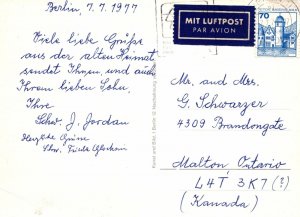 Berlin, 7.7.1977
Viele liebe Grüße
aus der alten Heimat
sendet Ihnen, und auch
Ihrem lieben Sohn.
Ihre
Schw. J. Jordan
Herzliche Grüsse
Schw. Frieda
MIT LUFTPOST
PAR AVION
70
Mr. and Mrs.
G. Schwarzer
4309 Brandongate
Malton Ontario
L4T 3K7 (?)
(Kanada)